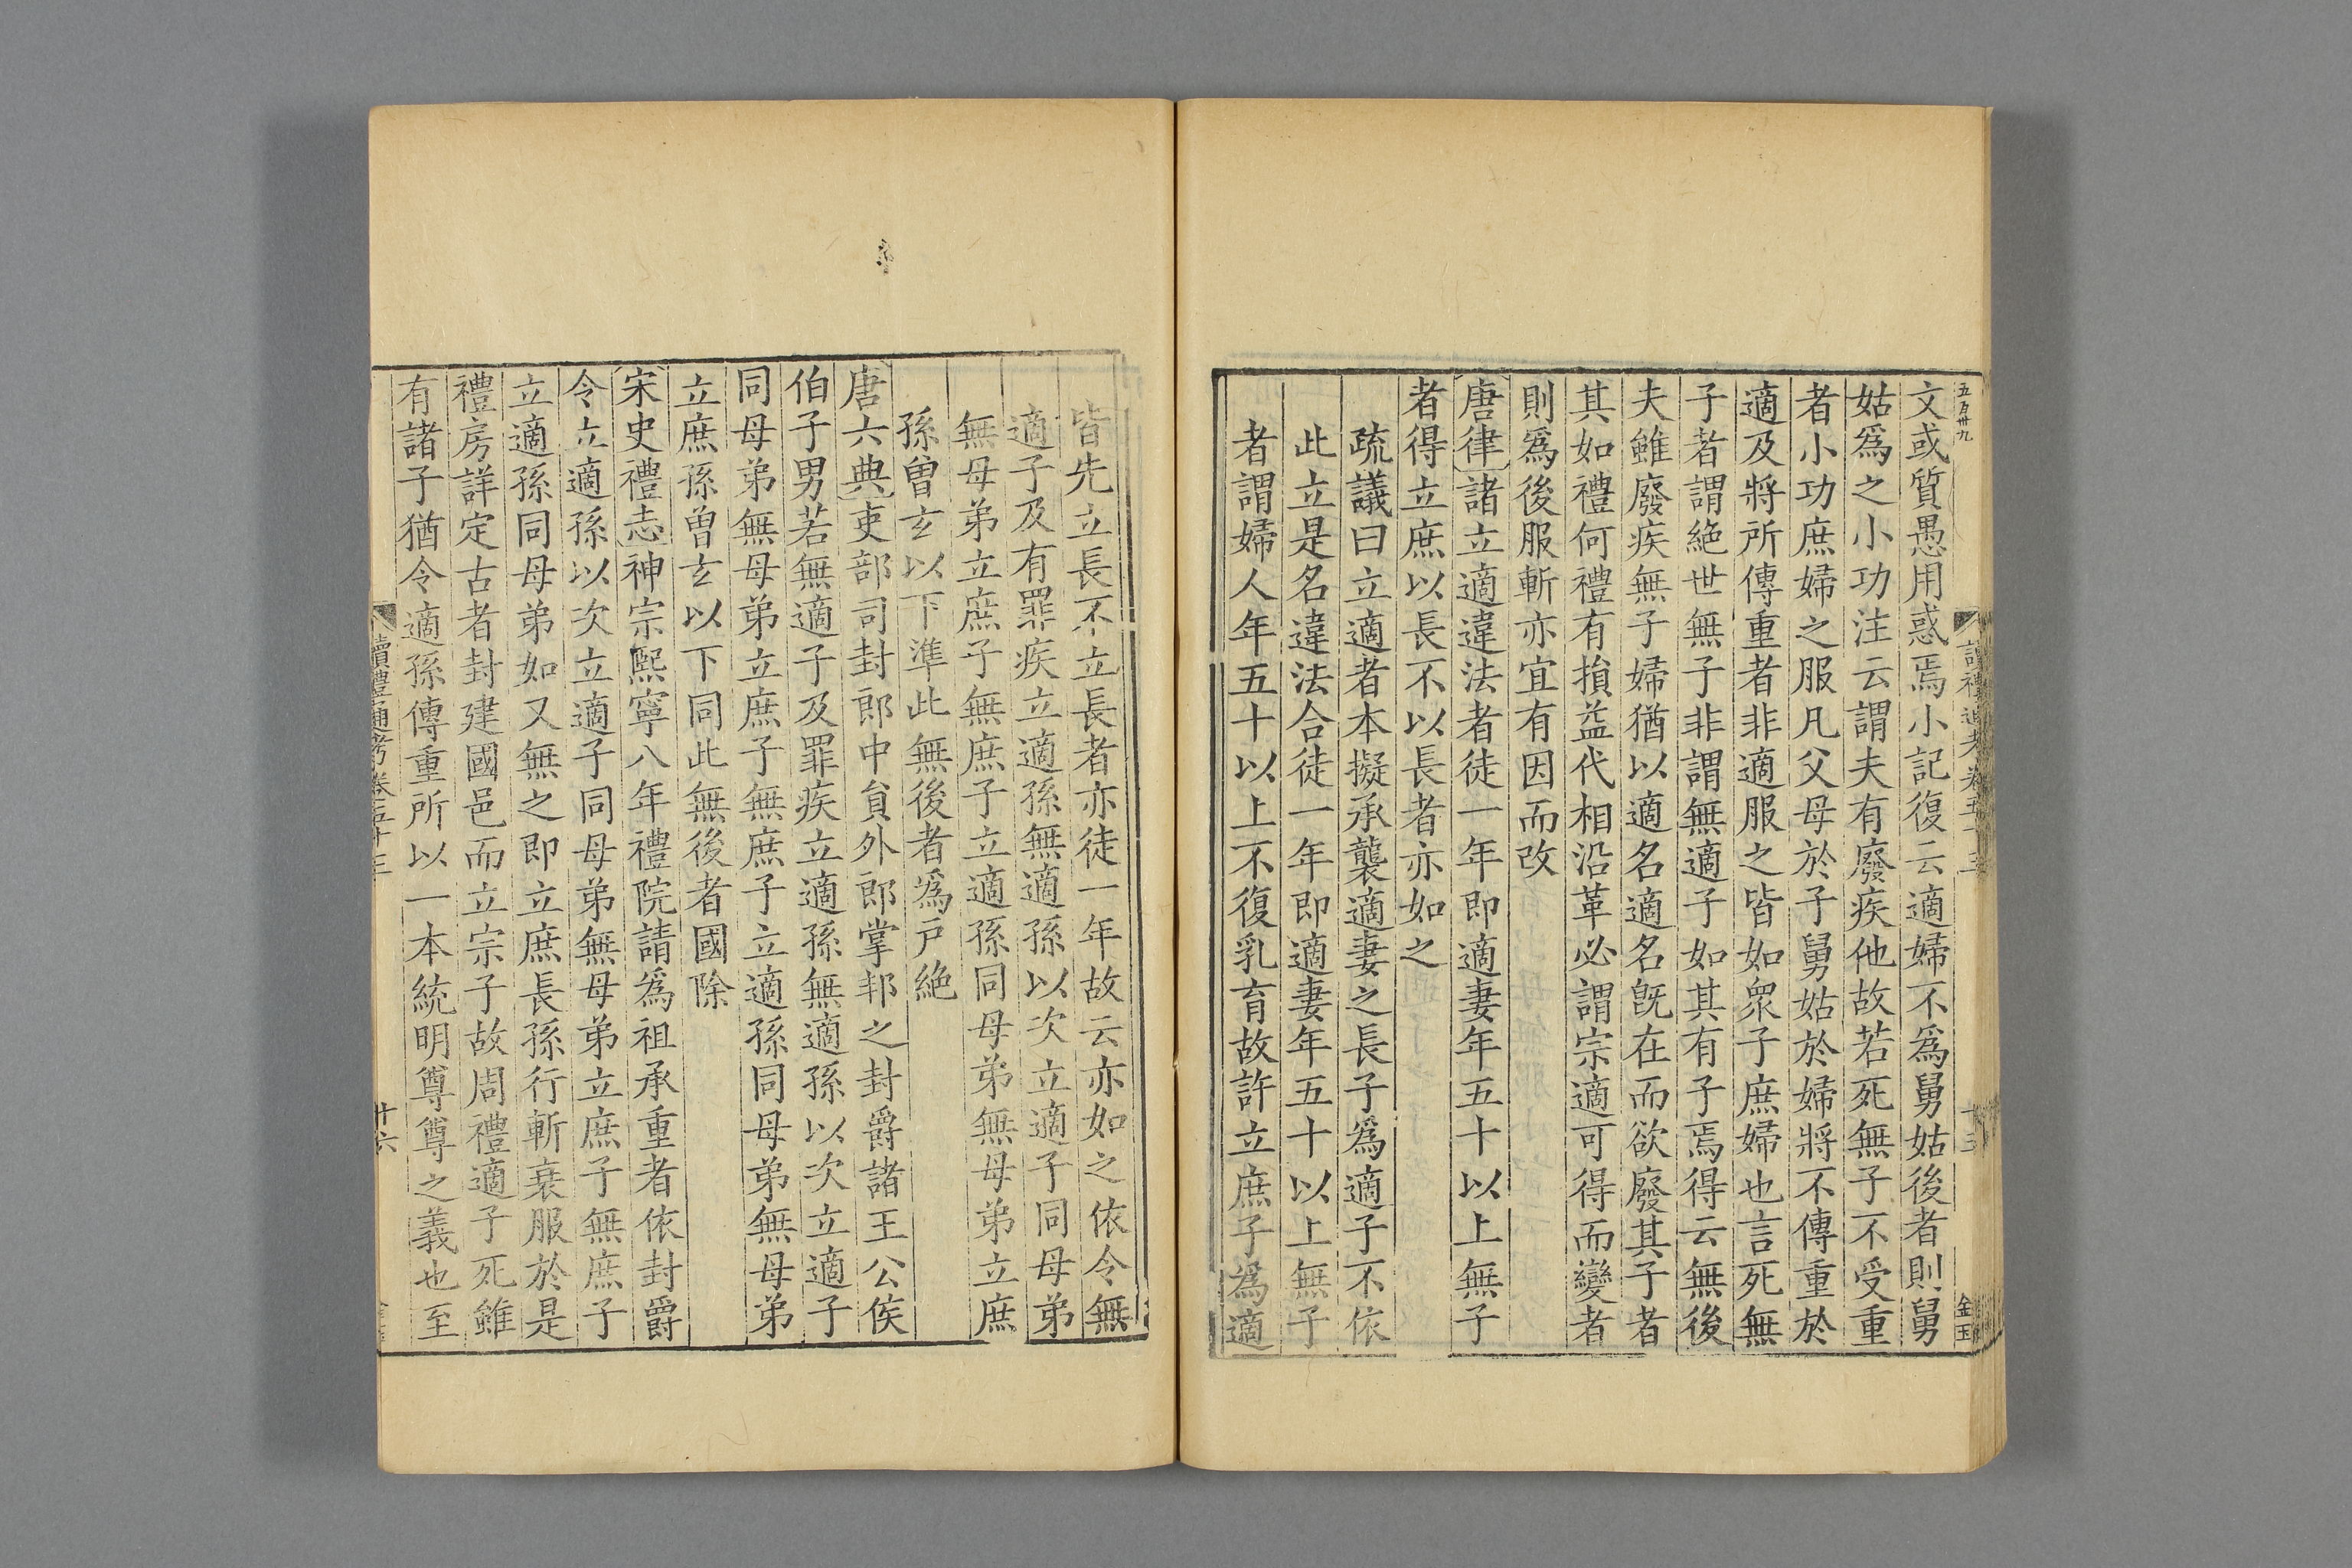 五百卅九
文或質愚用惑焉小記復云適婦不爲舅姑後者則舅
姑爲之小功注云謂夫有廢疾他故若死無子不受重
者小功庶婦之服凡父母於子舅姑於婦將不傳重於
適及將所傳重者非適服之皆如衆子庶婦也言死無
子者謂絶世無子非謂無適子如其有子焉得云無後
夫雖廢疾無子婦猶以適名適名旣在而欲廢其子者
其如禮何禮有損益代相沿革必謂宗適可得而變者
則爲後服斬亦宜有因而改
唐律諸立適違法者徒一年即適妻年五十以上無子
者得立庶以長不以長者亦如之
疏議曰立適者本擬承襲適妻之長子爲適子不依
此立是名違法合徒一年即適妻年五十以上無子
者謂婦人年五十以上不復乳育故許立庶子爲適
皆先立長不立長者亦徒一年故云亦如之依令無
適子及有罪疾立適孫無適孫以次立適子同母弟
無母弟立庶子無庶子立適孫同母弟無母弟立庶
孫曾玄以下準此無後者爲戸絶
唐六典吏部司封郎中貟外郎掌邦之封爵諸王公侯
伯子男若無適子及罪疾立適孫無適孫以次立適子
同母弟無母弟立庶子無庶子立適孫同母弟無母弟
立庶孫曾玄以下同此無後者國除
宋史禮志神宗熙寧八年禮院請爲祖承重者依封爵
令立適孫以次立適子同母弟無母弟立庶子無庶子
立適孫同母弟如又無之即立庶長孫行斬衰服於是
禮房詳定古者封建國邑而立宗子故周禮適子死雖
有諸子猶令適孫傳重所以一本統明尊尊之義也至
讀禮通考卷五十三
十六